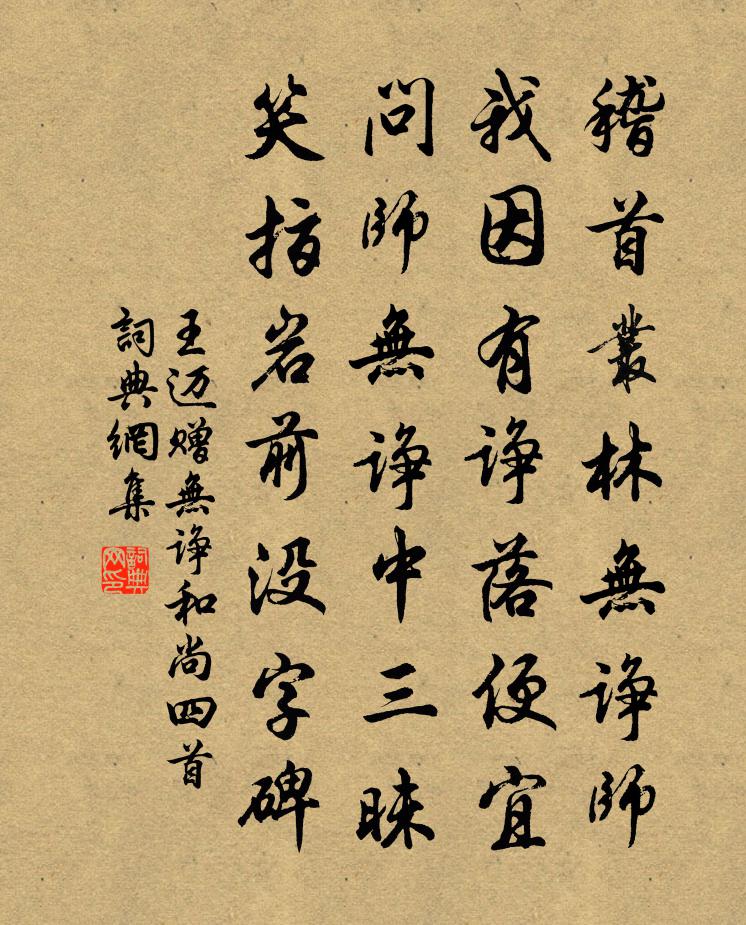 稽首叢林無諍師
我因有諍落便宜
問師無諍中三昧
笑指岩前没字碑
王迈赠無诤和尚四首
詞典網集
詞典网印